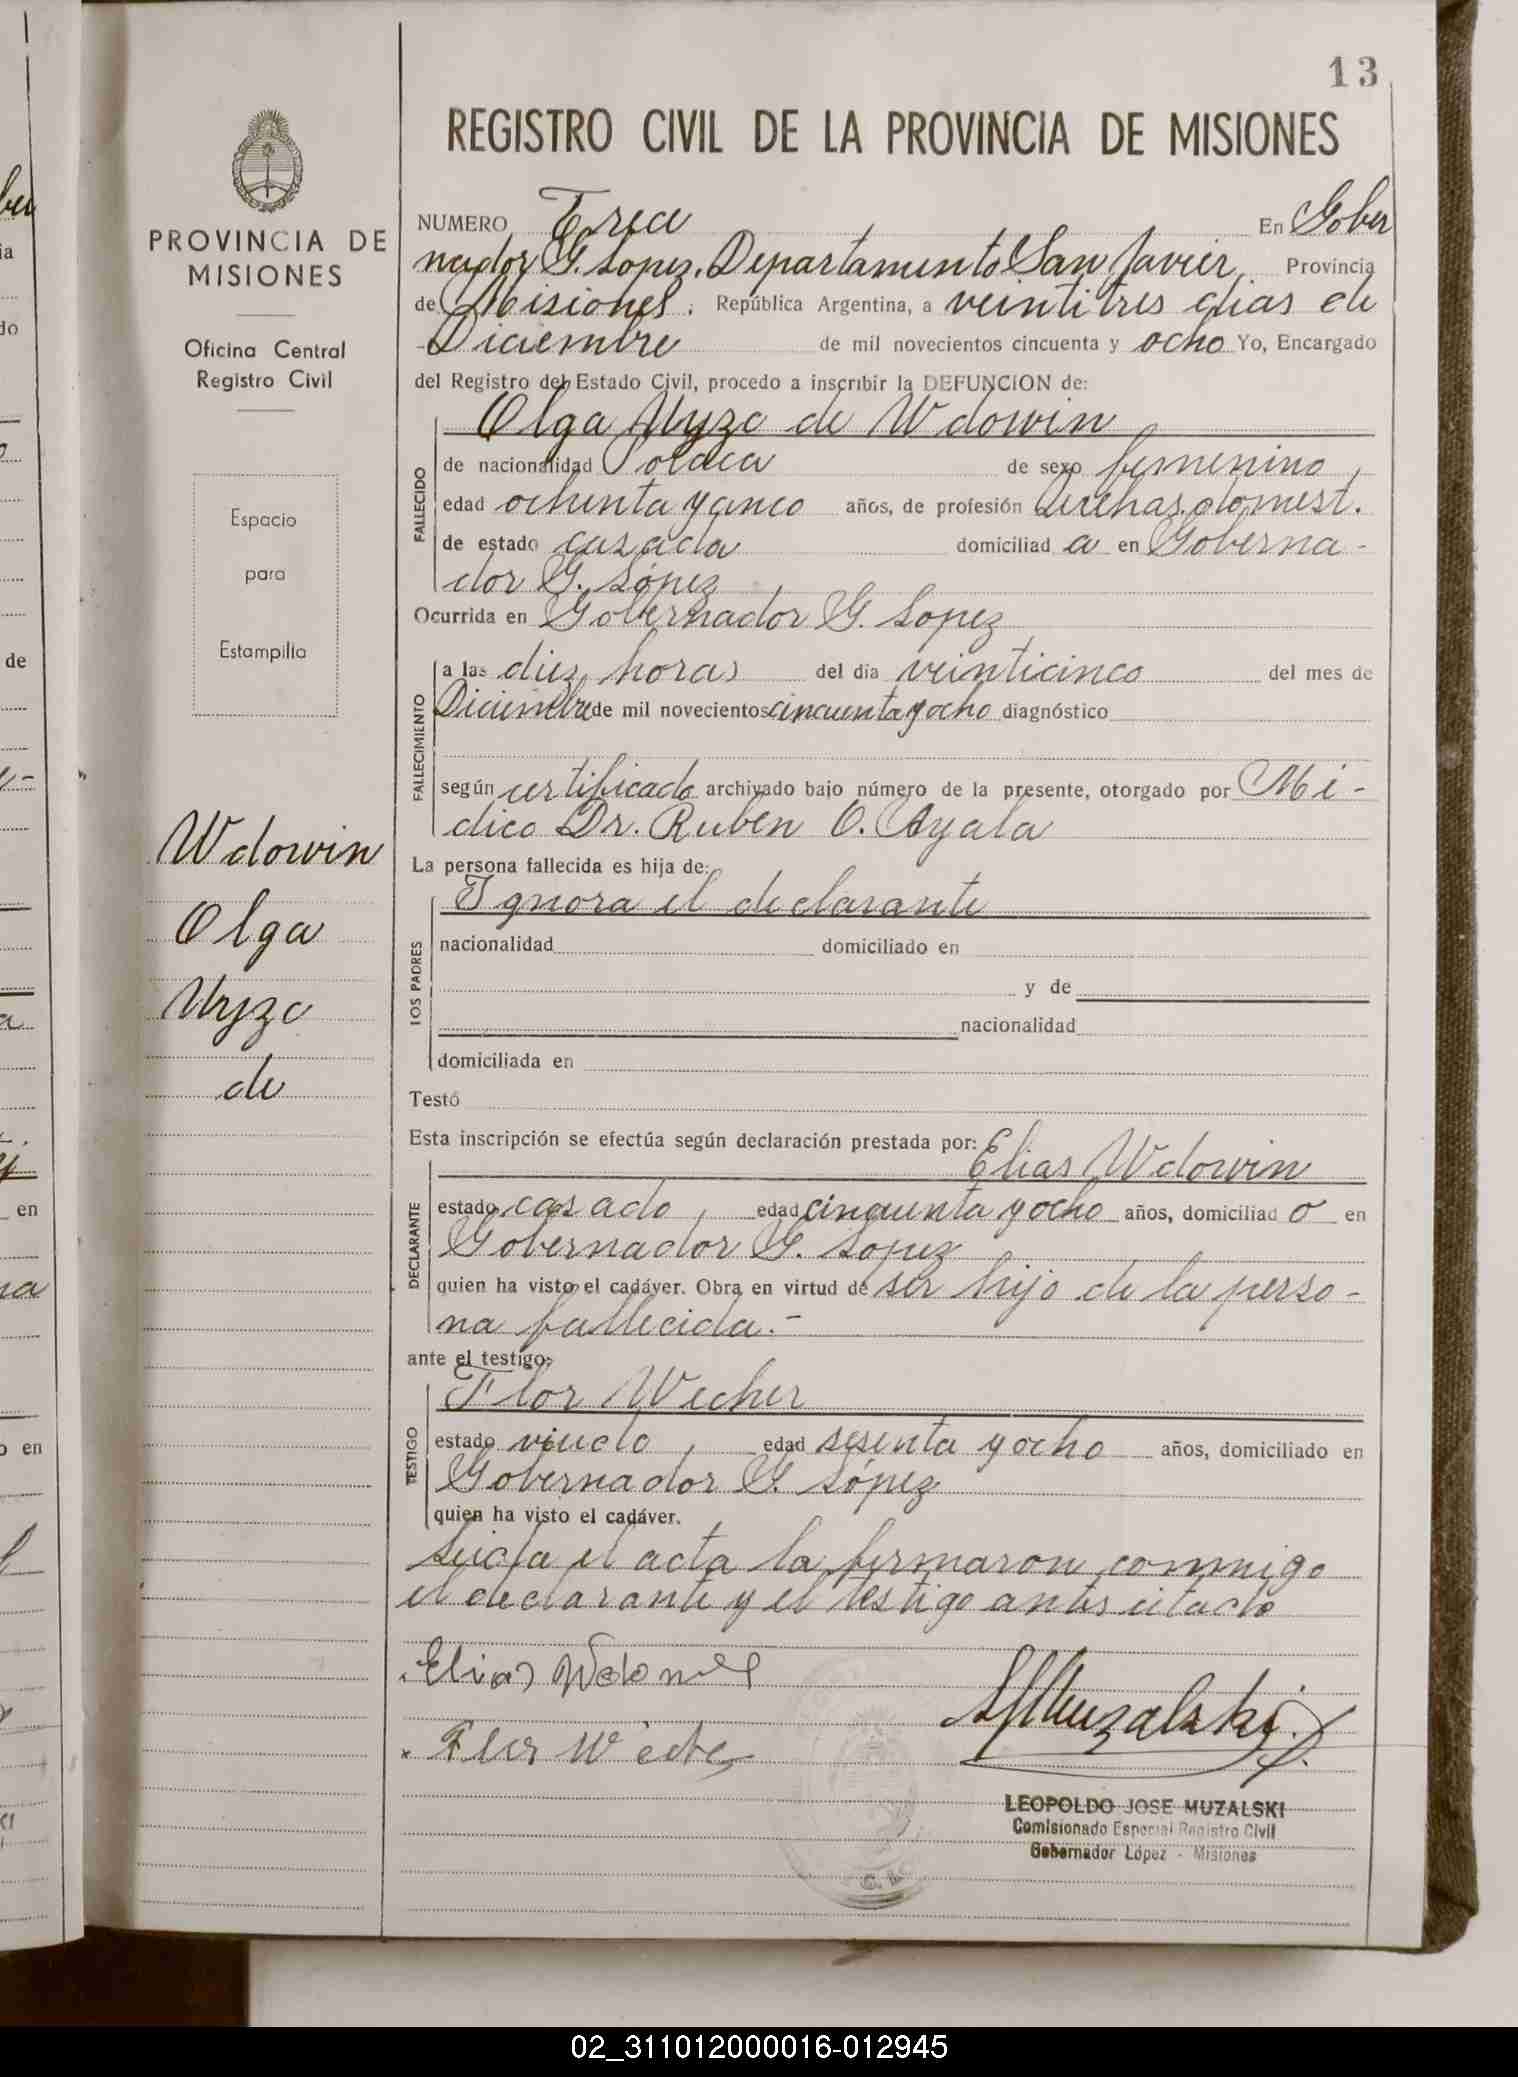 13
REGISTRO CIVIL DE LA PROVINCIA DE MISIONES
PROVINCIA DE
MISIONES
Oficina Central
Registro Civil
Espacio
para
Estampilla
Wdowin
Olga
Uyzc
de
NUMERO Trece En Gober
nador G. Lopez, Departamento San Javier, Provincia
de Misiones; República Argentina, a veintitres dias de
Diciembre de mil novecientos cincuenta y ocho Yo, Encargado
del Registro del Estado Civil, procedo a inscribir la DEFUNCION de:
Olga Uyzc de Wdowin
FALLECIDO
de nacionalidad Polaca de sexo femenino,
edad ochenta y cinco años, de profesión Quehac. domest.
de estado casada domiciliad a en Goberna-
dor G. López
Ocurrida en Gobernador G. Lopez
FALLECIMIENTO
a las diez horas del día veinticinco del mes de
Diciembre de mil novecientos cincuenta y ocho diagnóstico
según certificado archivado bajo número de la presente, otorgado por Mé-
dico Dr. Ruben O. Ayala
La persona fallecida es hija de:
Ignora el declarante
LOS PADRES
nacionalidad domiciliado en
y de
nacionalidad
domiciliada en
Testó
Esta inscripción se efectúa según declaración prestada por:
Elias Wdowin
DECLARANTE
estado casado, edad cincuenta y ocho años, domiciliad o en
Gobernador G. Lopez
quien ha visto el cadáver. Obra en virtud de ser hijo de la perso-
na fallecida.-
ante el testigo:
Flor Wecher
TESTIGO
estado viudo, edad sesenta y ocho años, domiciliado en
Gobernador G. López
quien ha visto el cadáver.
Leida el acta la firmaron conmigo
el declarante y el testigo antes citado
Elias
Flor
LMuzalski
LEOPOLDO JOSE MUZALSKI
Comisionado Especial Registro Civil
Gobernador López - Misiones
02_311012000016-012945